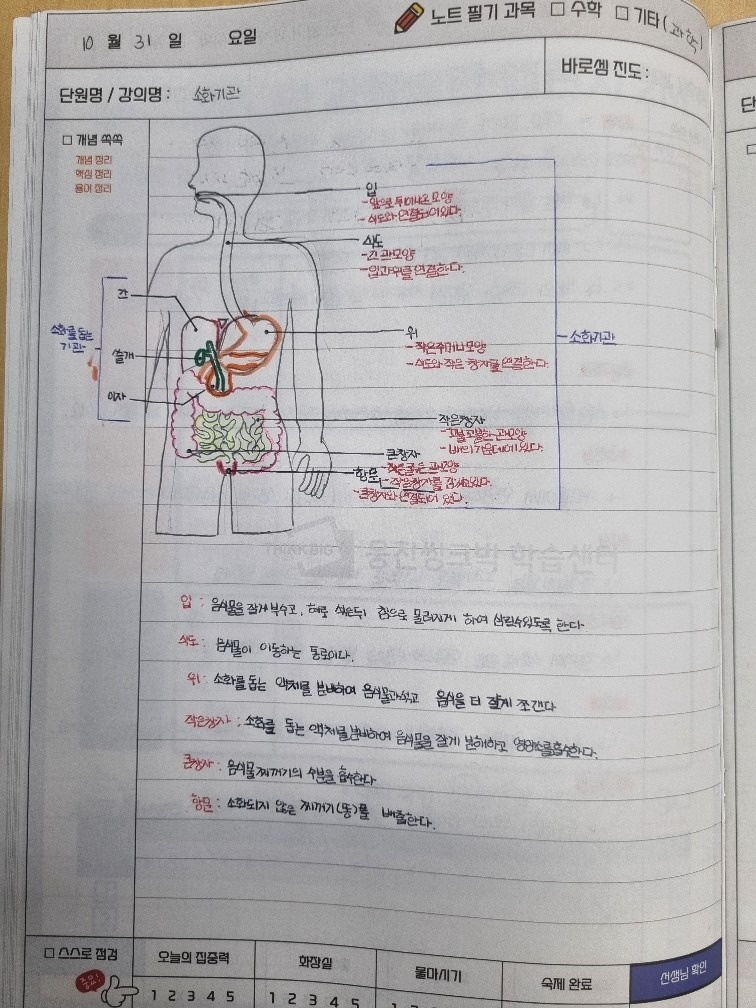 노트 필기 과목 □ 수학 □ 기타 ( 과학 )
10 월 31 일 요일
단원명 / 강의명 : 소화기관
바로셈 진도 :
□ 개념 쏙쏙
개념 정리
핵심 정리
용어 정리
입
- 앞으로 튀어나온 모양
- 식도와 연결되어있다.
식도
- 긴 관모양
- 입과 위를 연결한다.
간
소화를 돕는
기관
쓸개
이자
위
- 작은주머니모양
- 식도와 작은 창자를 연결한다.
소화기관
작은창자
- 꼬불꼬불한 관모양
- 배의 가운데에 있다.
큰창자
- 굵은 관모양
- 작은창자를 감싸고있다.
항문
- 큰창자와 연결되어 있다.
웅진씽크빅 학습센터
입 : 음식물을 잘게 부수고, 혀로 섞은뒤 침으로 물러지게 하여 삼킬수있도록 한다
식도 : 음식물이 이동하는 통로이다.
위 : 소화를 돕는 액체를 분비하여 음식물과섞고 음식을 더 잘게 쪼갠다
작은창자 : 소화를 돕는 액체를 분비하여 음식물을 잘게 분해하고 영양소를흡수한다.
큰창자 : 음식물 찌꺼기의 수분을 흡수한다
항문 : 소화되지 않은 찌꺼기(똥)를 배출한다.
□ 스스로 점검
오늘의 집중력
화장실
물마시기
숙제 완료
선생님 확인
중요!
1 2 3 4 5
1 2 3 4 5